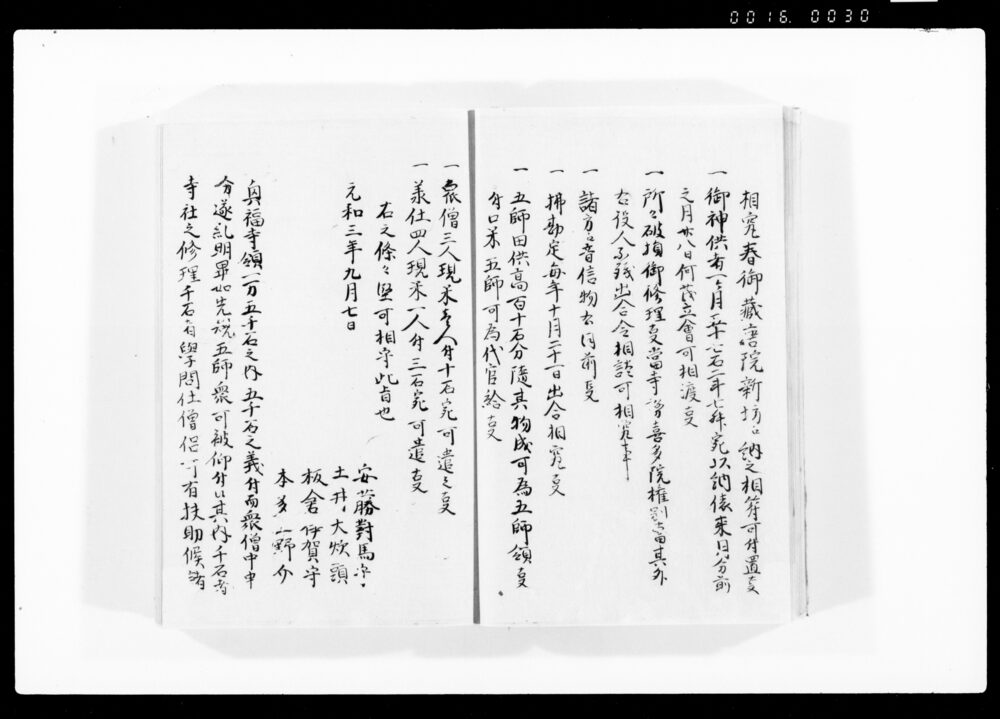 0016. 0030
相究春御蔵唐院新坊ニ納之相符可付置事
一御神供者一ヶ月 宛以納俵来月分前
之月廿八日何茂立會可相渡事
一所々破損御修理事當寺 喜多院権別當其外
右役人不残出合令相談可相究事
一諸方音信物右同前事
一拂勘定毎年十月二十日出合相究事
一五師田供高百十石分隨其物成可為五師領事
付口米五師可為代官給事
一衆僧三人現米壱人付十石宛可遣之事
一承仕四人現米一人付三石宛可遣事
右之條々堅可相守此旨也
元和三年九月七日
安藤對馬守
土井大炊頭
板倉伊賀守
本多上野介
興福寺領一万五千石之内五千石之義付而衆僧中申
分遂糺明畢如先規五師衆可被仰付以其内千石者
寺社之修理千石者學問仕僧侶可有扶助候